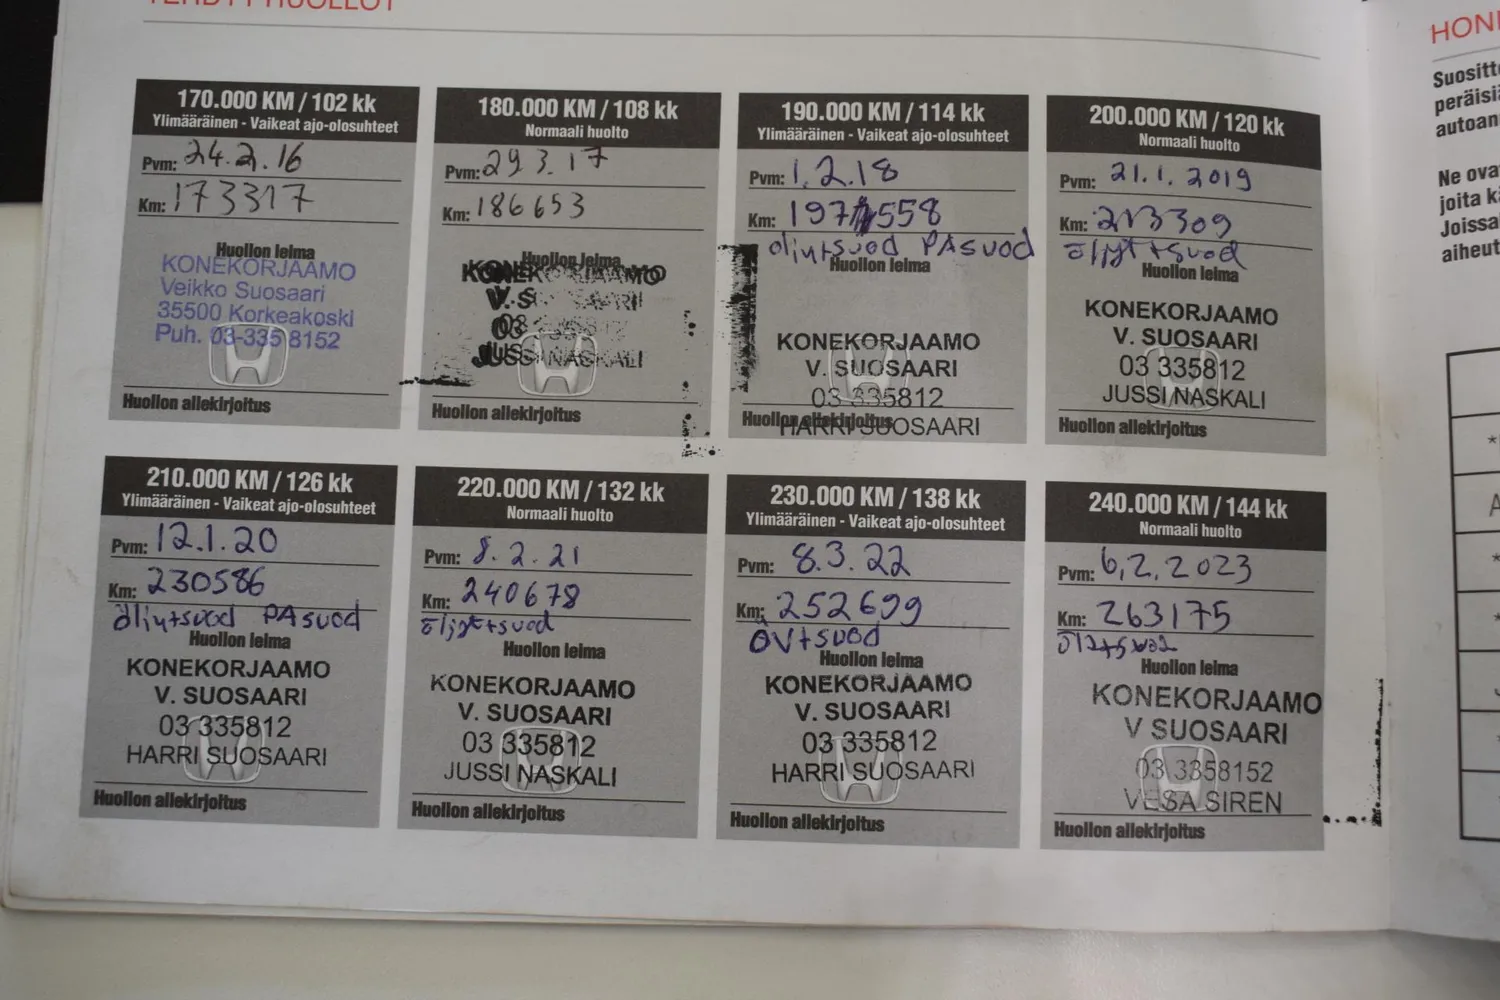 TEHDYT HUOLLOT
170.000 KM / 102 kk
Ylimääräinen - Vaikeat ajo-olosuhteet
Pvm: 24.2.16
Km: 173317
Huollon leima
KONEKORJAAMO
Veikko Suosaari
35500 Korkeakoski
Puh. 03-335 8152
Huollon allekirjoitus
180.000 KM / 108 kk
Normaali huolto
Pvm: 29 3.17
Km: 186653
Huollon leima
KONEKORJAAMO
V. SUOSAARI
03
JUSSI NASKALI
Huollon allekirjoitus
190.000 KM / 114 kk
Ylimääräinen - Vaikeat ajo-olosuhteet
Pvm: 1.2.18
Km: 197 558
öljy+suod PAsuod
Huollon leima
KONEKORJAAMO
V. SUOSAARI
03 335812
Huollon allekirjoitus
HARRI SUOSAARI
200.000 KM / 120 kk
Normaali huolto
Pvm: 21.1. 2019
Km: 213309
öljyt+suod
Huollon leima
KONEKORJAAMO
V. SUOSAARI
03 335812
JUSSI NASKALI
Huollon allekirjoitus
210.000 KM / 126 kk
Ylimääräinen - Vaikeat ajo-olosuhteet
Pvm: 12.1.20
Km: 230586
öljy+suod PAsuod
Huollon leima
KONEKORJAAMO
V. SUOSAARI
03 335812
HARRI SUOSAARI
Huollon allekirjoitus
220.000 KM / 132 kk
Normaali huolto
Pvm: 8.2.21
Km: 240678
öljyt+suod
Huollon leima
KONEKORJAAMO
V. SUOSAARI
03 335812
JUSSI NASKALI
Huollon allekirjoitus
230.000 KM / 138 kk
Ylimääräinen - Vaikeat ajo-olosuhteet
Pvm: 8.3.22
Km: 252699
ÖV+suod
Huollon leima
KONEKORJAAMO
V. SUOSAARI
03 335812
HARRI SUOSAARI
Huollon allekirjoitus
240.000 KM / 144 kk
Normaali huolto
Pvm: 6.2.2023
Km: 263175
Huollon leima
KONEKORJAAMO
V SUOSAARI
03 3358152
VESA SIREN
Huollon allekirjoitus
HON
Suositt
peräisi
autoan
Ne ova
joita k
Joissa
aiheut